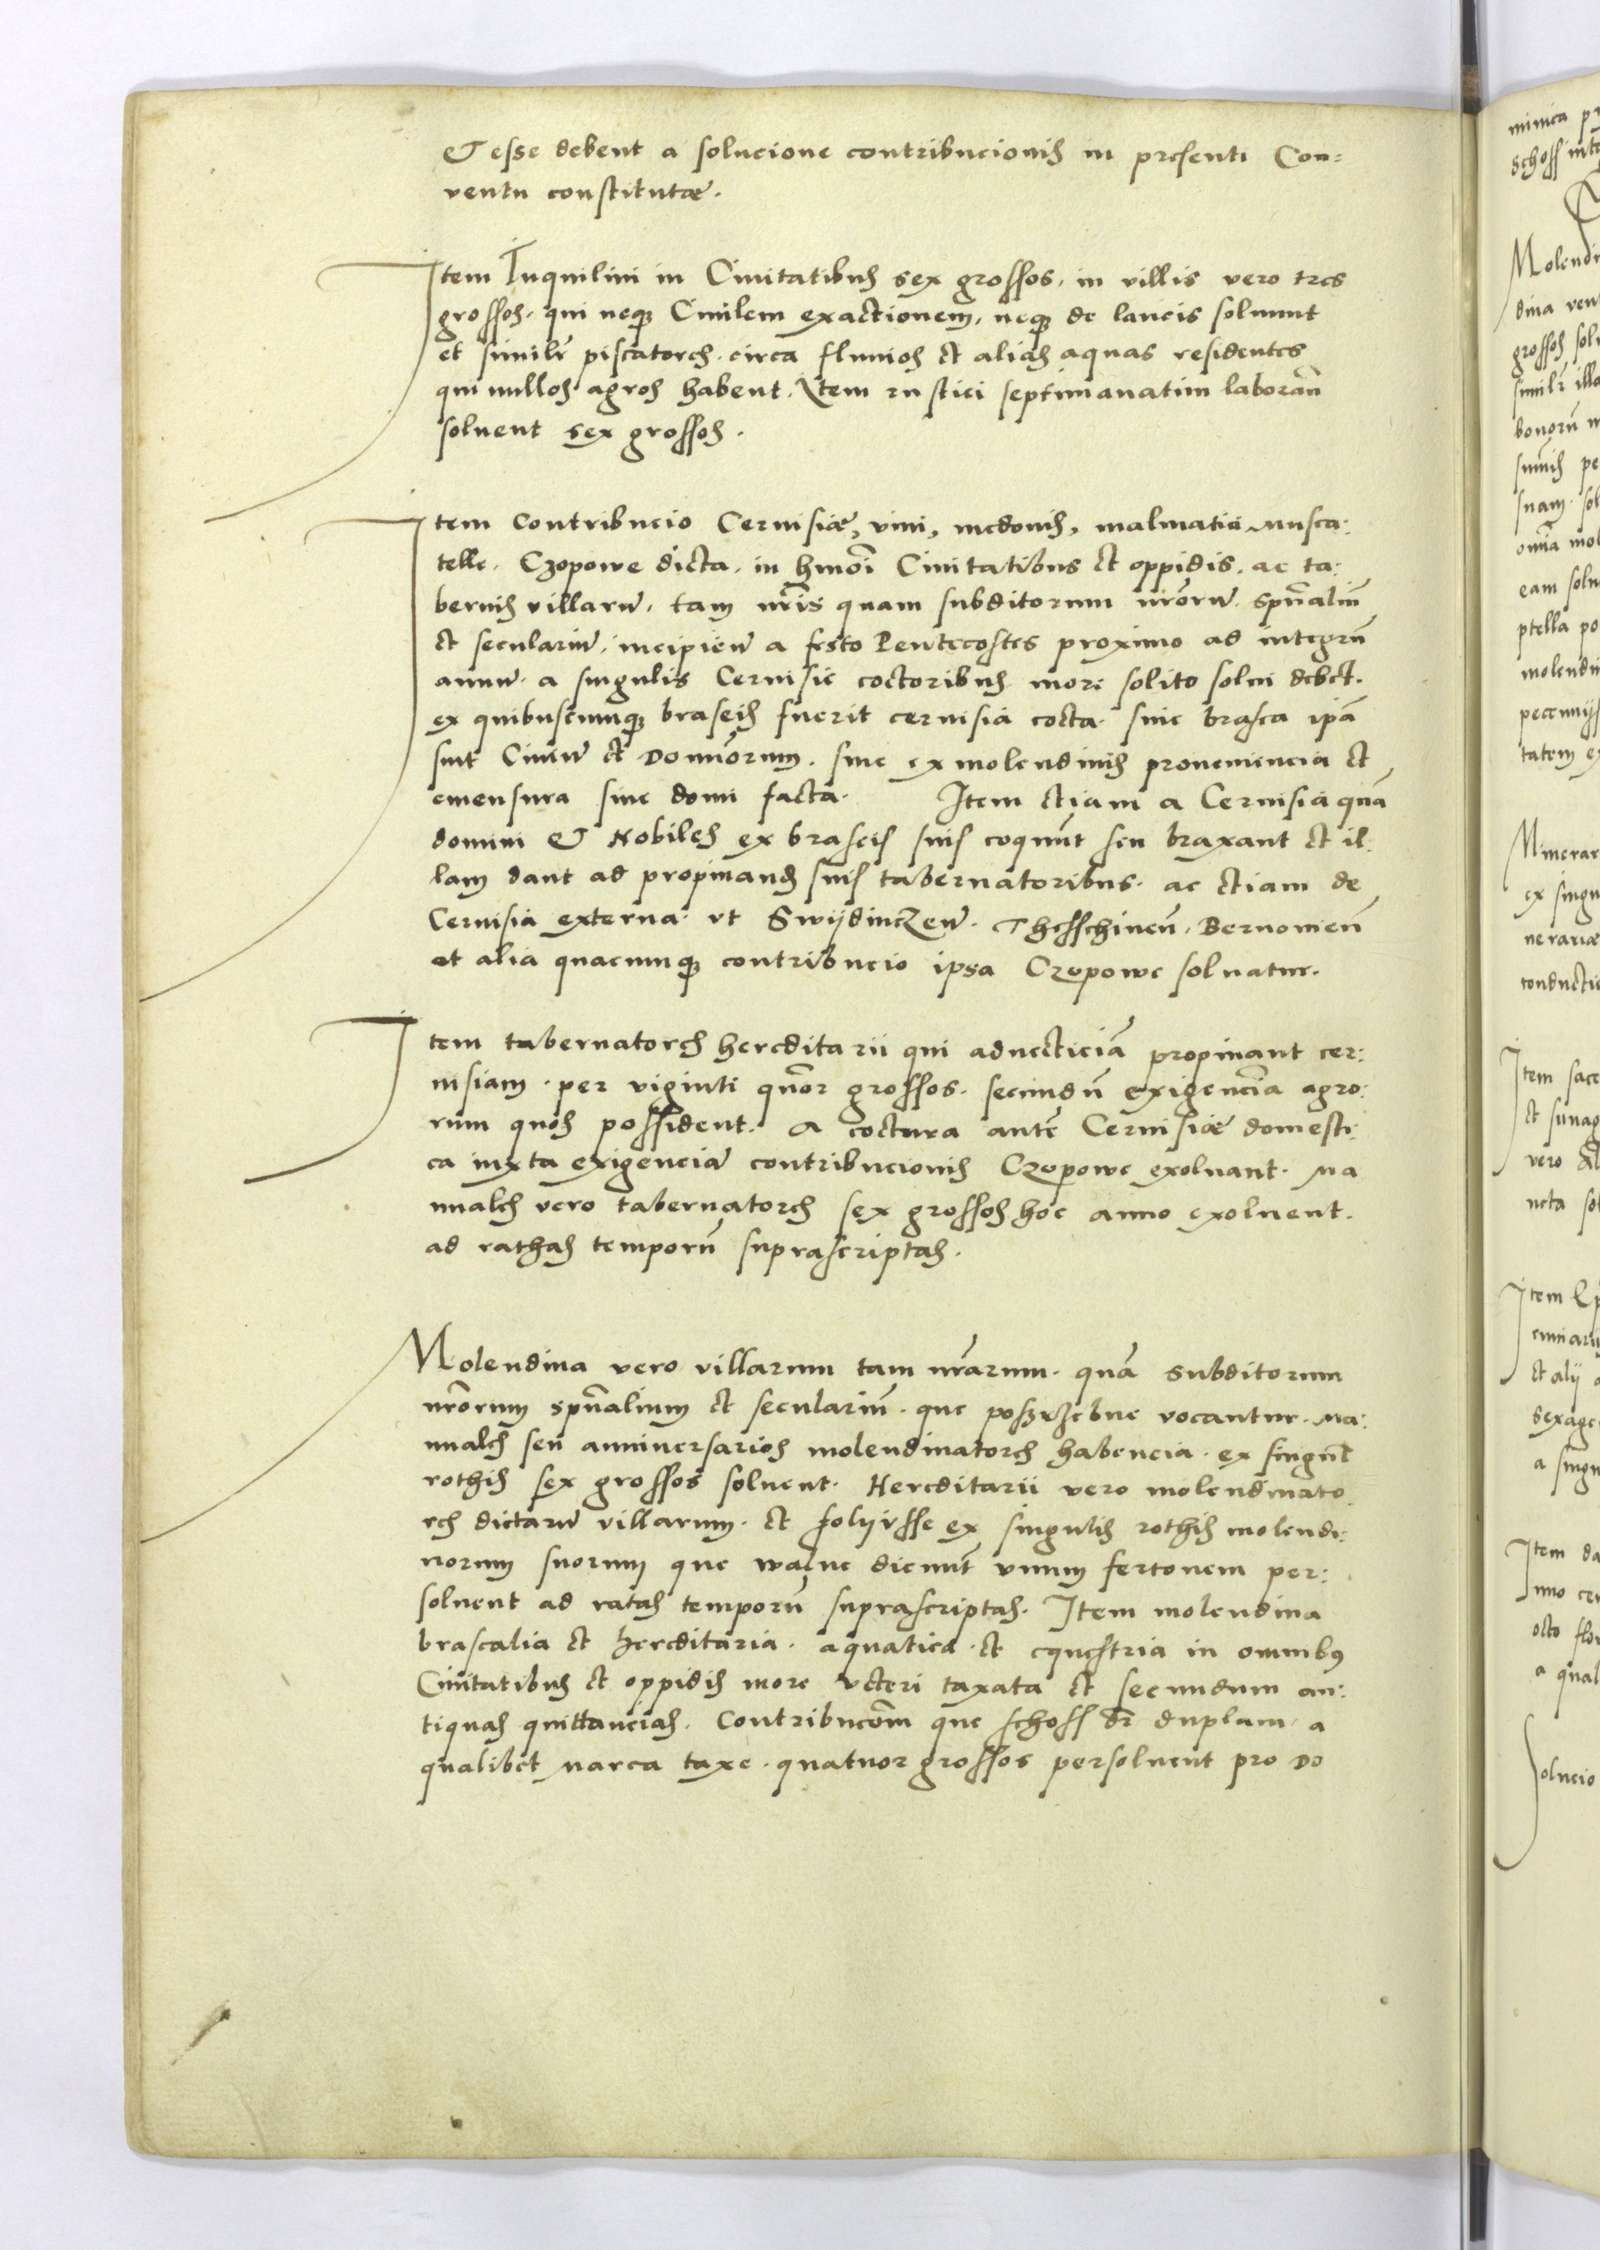 Et esse debent a solucione contribucionis in presenti Con:
ventu constitutae.
Item Inquilini in Civitatibus sex grossos, in villis vero tres
grossos. qui neque Civilem exactionem, neque de laneis solvunt
et similr piscatores. circa fluvios et alias aquas residentes
qui nullos agros habent. Item rustici septimanatim laboran̄
solvent sex grossos.
Item Contribucio Cervisiae, vini, medonis, malmatici Musca:
telle. Czopowe dicta. in hmōi Civitatibus et oppidis. ac ta:
bernis villarum. tam nr̄is quam subditorum nrōrum. spūalium
et secularium, incipien̄ a festo Pentecostes proximo ad integrū
annum. a singulis Cervisie coctoribus more solito solvi debet.
ex quibuscunque braseis fuerit cervisia cocta. sive brasea ipā
sint Civium et Domīorum. sive ex molendinis proveniencia et
emensura sive domi facta. Item etiam a Cervisia quā
domini Et Nobiles ex braseis suis coqunt seu braxant et il:
lam dant ad propinand suis tabernatoribus. ac etiam de
Cervisia externa. ut Swijdinczen̄. Thesschinen̄. Bernowien̄
et alia quacunque contribucio ipsa Czopowe solvatur.
Item tabernatores hereditarii qui advecticiā propinant cer:
visiam. per viginti quōr grossos. secundū exigenciā agro:
rum quos possident. A coctura autē Cervisiae domesti:
ca iuxta exigenciam contribucionis Czopowe exolvant. Ma
nuales vero tabernatores sex grossos hoc anno exolvent.
ad rathas temporū suprascriptas.
Molendina vero villarum tam nrārum. quā subditorum
nrōrum spūalium et seculariū. que vocantur. Ma:
nuales seu anniversarios molendinatores habencia. ex singul̄
rothis sex grossos solvent. Hereditarii vero molendinato
res dictarum villarum. et folyvsse ex singulis rothis molendi:
norum suorum que walne dicunt̄ unum fertonem per:
solvent ad ratas temporū suprascriptas. Item molendina
brasealia et hereditaria. aquatica. et equestria in omnibus
Civitatibus et oppidis more veteri taxata et secundum an:
tiquas quittancias. Contribucōm que schoss dr̄ duplam. a
qualibet marca taxe. quatuor grossos persolvent pro Do